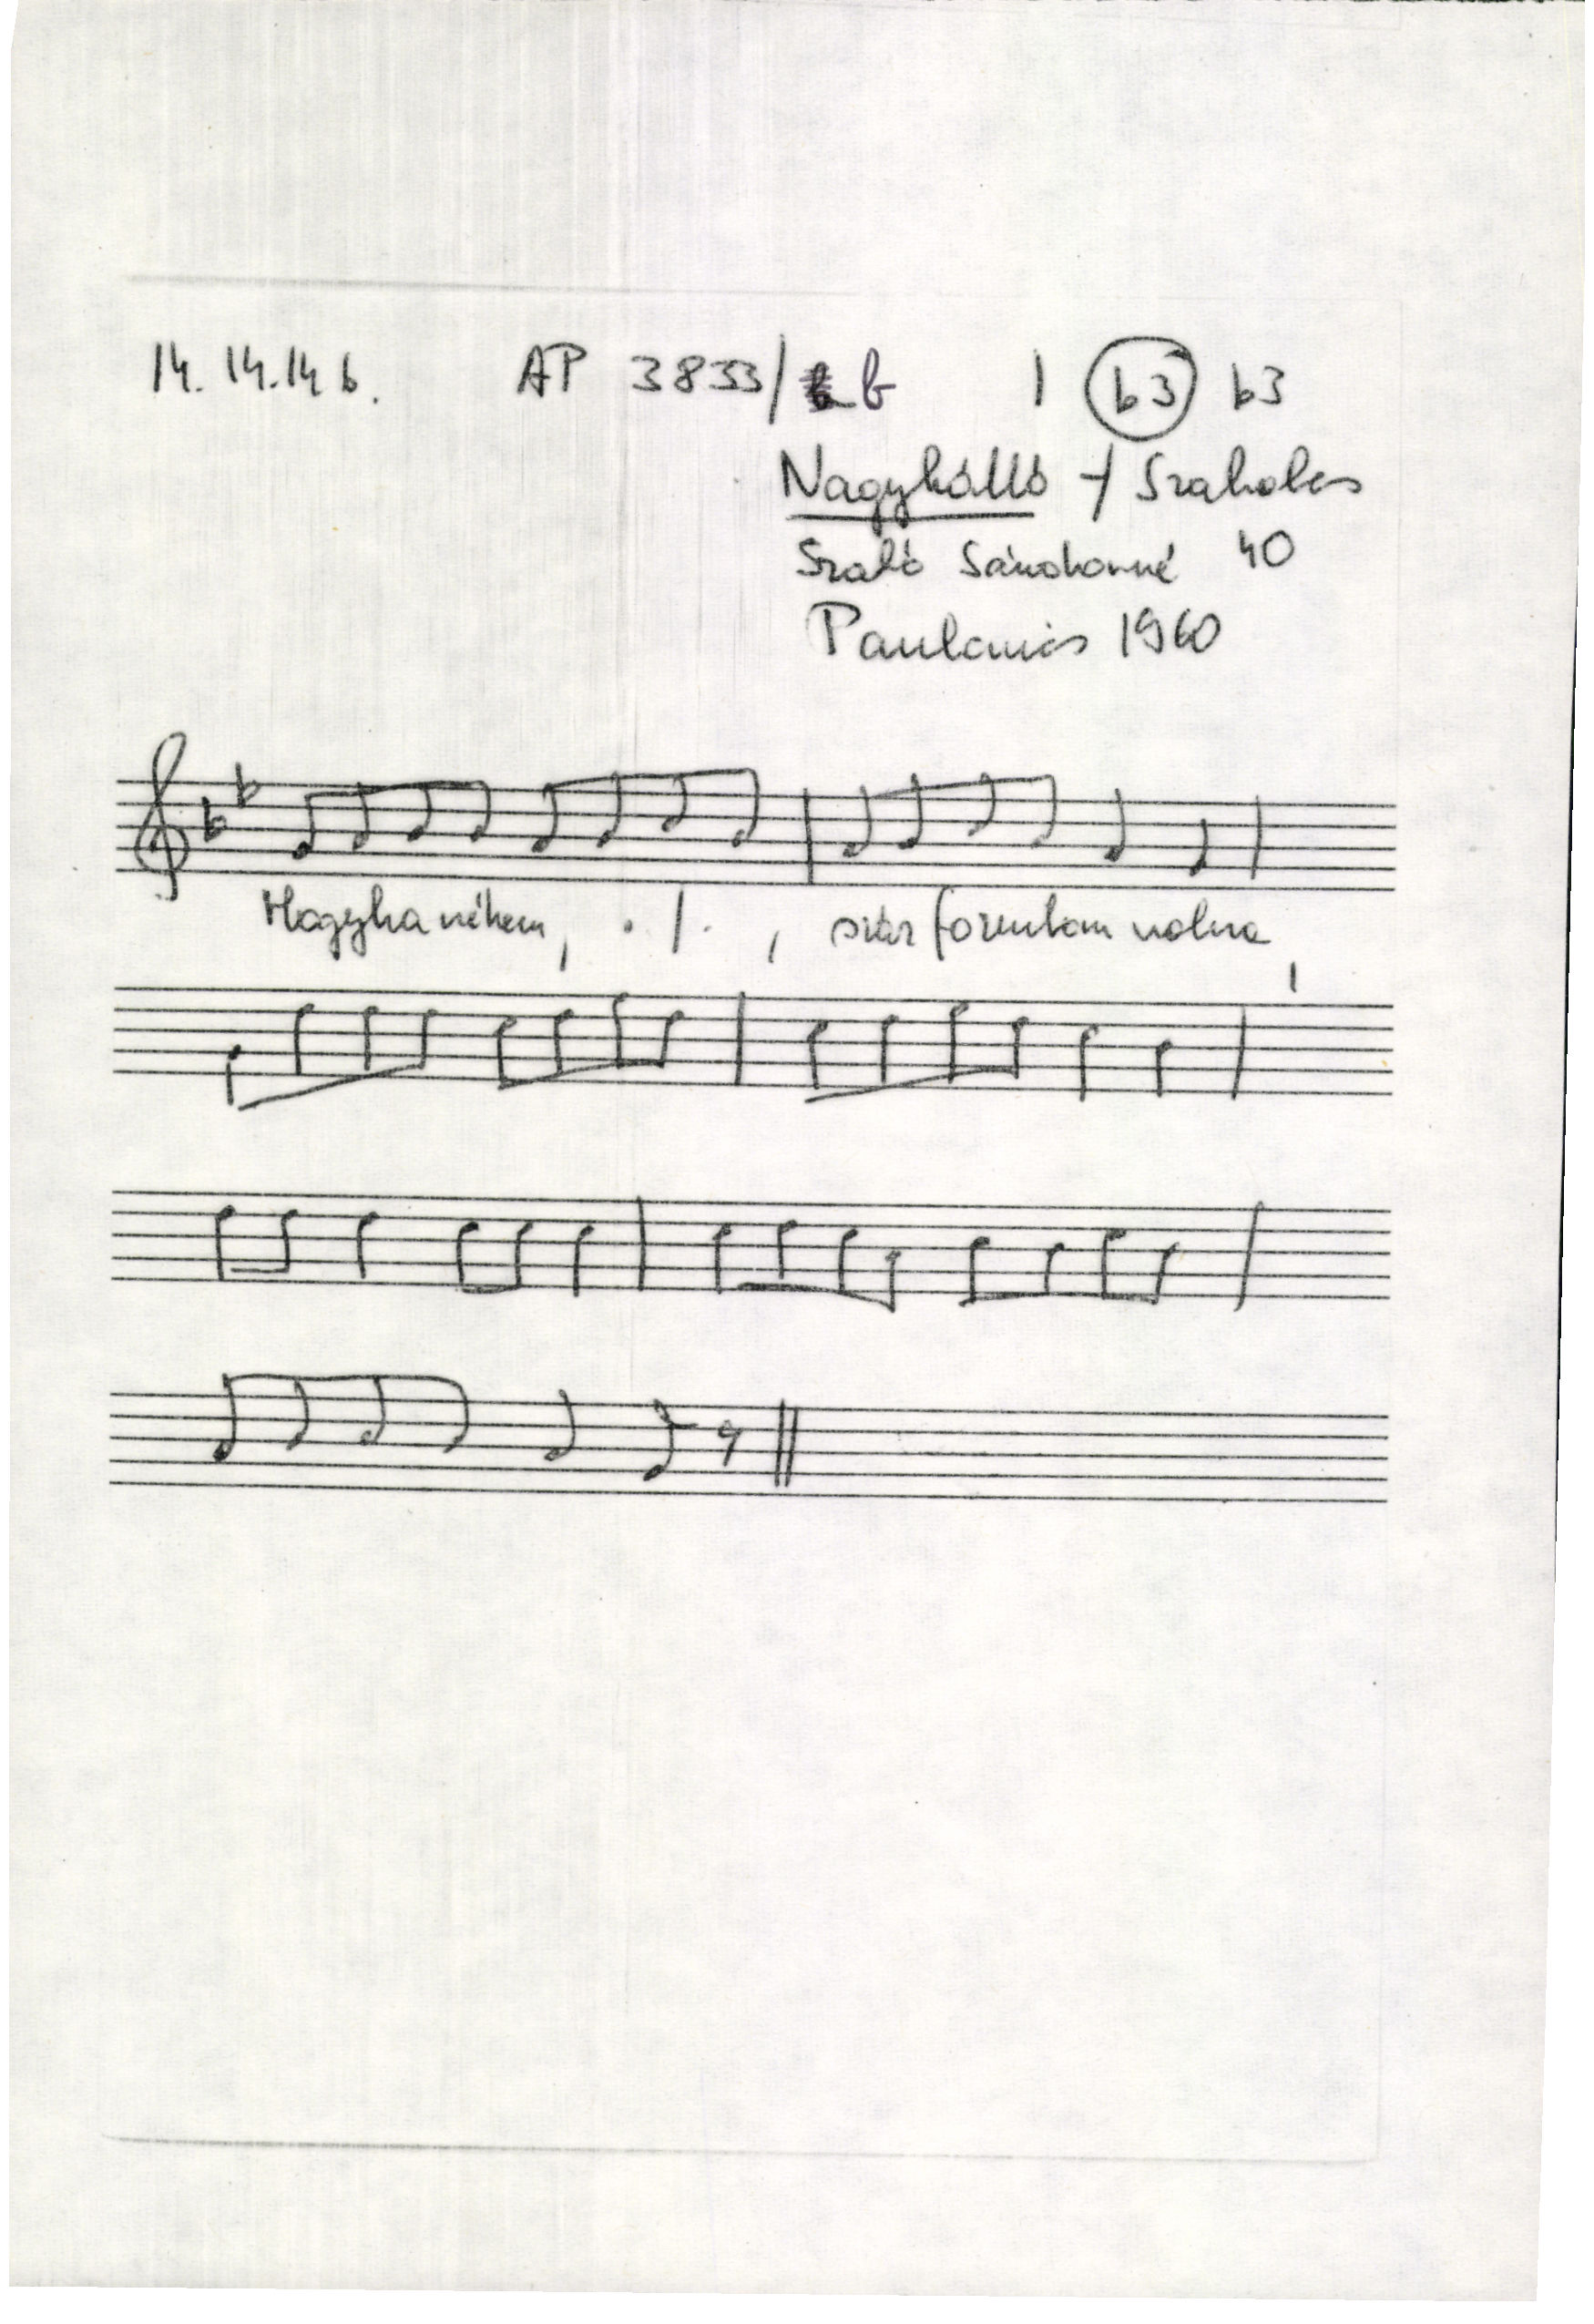 14. 14. 14 b. AP 3833/b 1 b3 b3
Nagykálló - / Szabolcs
Szabó Sándorné 40
1960
Hogyha nékem, . / . , száz forintom volna,